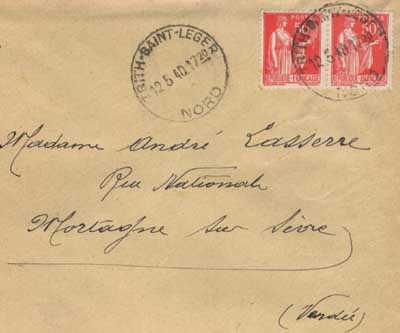 TRITH-SAINT-LEGER
12.5.40.17 20
NORD
POSTES
50c
REPUBLIQUE FRANÇAISE
Madame André Lasserre
Rue Nationale
Mortagne sur Sèvre
(Vendée)